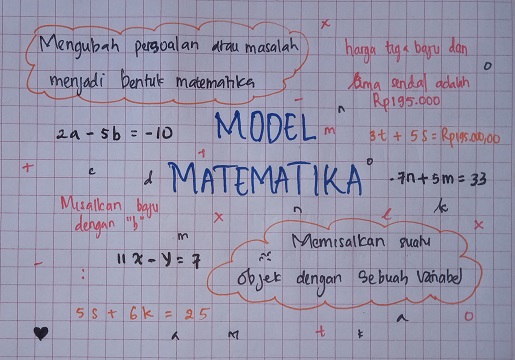 Mengubah persoalan atau masalah
menjadi bentuk matematika
x
harga tiga baju dan
lima sendal adalah
Rp195.000
o
-
n
2a - 5b = -10
MODEL
m
3t + 5s = Rp195.000,00
+
c
d
+
MATEMATIKA
o
-7n + 5m = 33
Misalkan baju
dengan "b"
x
n
l
k
x
m
Memisalkan suatu
objek dengan sebuah variabel
-
:
11x - y = 7
5s + 6k = 25
a
o
m
t
k